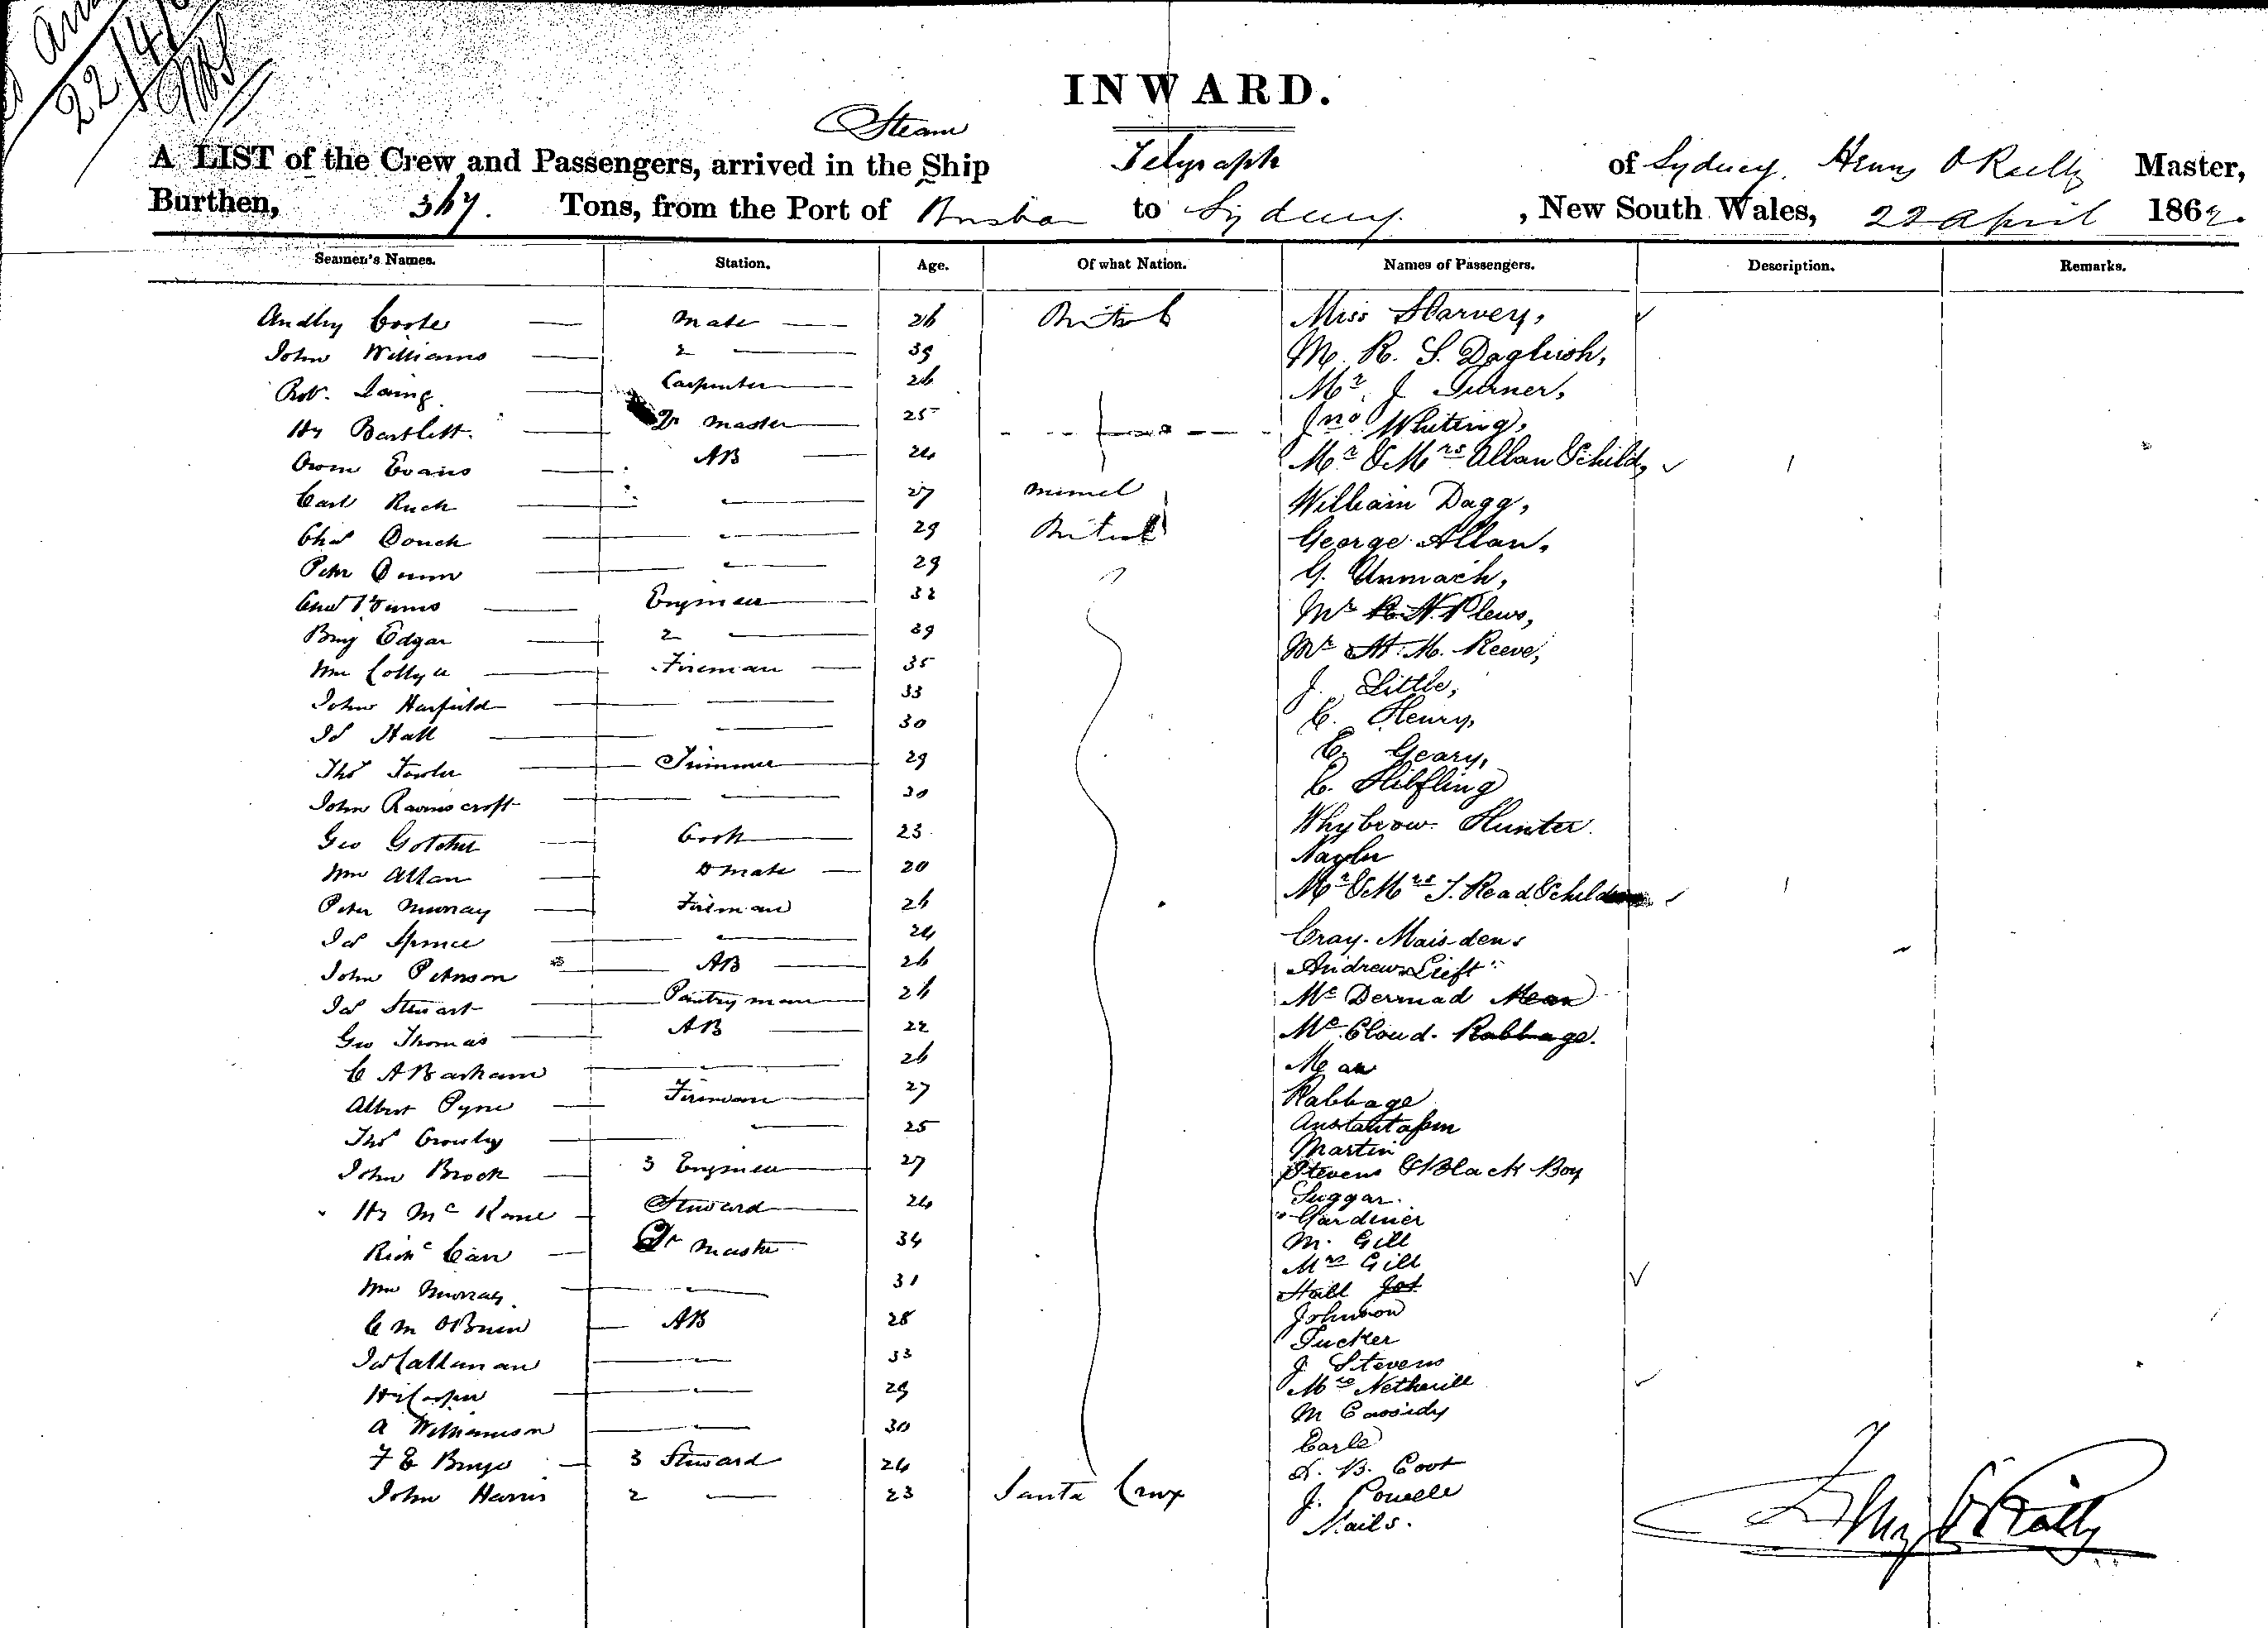 22/4/6
INWARD.
Steam
A LIST of the Crew and Passengers, arrived in the Ship Telegraph of Sydney, Henry O Reilly Master,
Burthen, 367. Tons, from the Port of Brisban to Sydney. , New South Wales, 22 April 1862.
Seamen's Names. Station. Age. Of what Nation. Names of Passengers. Description. Remarks.
Andley Coote — Mate — 26 British Miss Harvey,
John Williams — 2 — 39 Mr. R. S. Daglush,
Robt. Laing — Carpenter — 26 Mr. J Turner,
Hy Bartlett. — Qr Master — 25 Jno Whiting,
Owen Evans — AB — 24 Mr & Mrs Allan & Child,
Carl Ruck — " — 27 Mimel William Dagg,
Chas Couch — " — 29 British George Allan,
Peter Dunn — " — 29 G. Unmach,
Engineer — 32 Mr R. N. Plews,
Benj Edgar — 2 — 29 Mr H. M. Reeve,
Wm Collyer — Fireman — 35 J. Little,
John Harfield — — 33 C. Henry,
Js Hall — — 30 C. Geary,
Thos Fowler — Trimmer — 29 C. Hilfling
John Ravenscroft — " — 30 Whybrow. Hunter.
Geo Gotcher — Cook — 23 Naylor
Wm Allan — Do mate — 20 Mr & Mrs T. Read & Children
Peter Murray — Fireman 26 Cray. Mais-den.
Js Spence — " — 24 Andrew Lieft
John Peterson — AB — 26 Mc Dermad Mean
Js Stewart — Pantryman — 26 Mc Cloud. Rabbage.
Geo Thomas — AB — 22 Mean
C A Barham — " — 26 Rabbage
Albert Pyne — Fireman — 27
Thos Crowley — " — 25 Martin
John Brook — 3 Engineer — 27 Stevens & Black Boy
Hy Mc Kane — Steward — 24 Suggar.
Gardiner
Richd Carr — Qr Master 34 M. Gill
Mrs Gill
Wm Murray. — " — 31 Hall
Johnson
C M OBrien — AB 28 Tucker
Js Callanan — " — 33 J Stevens
Hy Cooper — " — 29 Mrs Netherill
A Williamson — " — 30 M Cassidy
Earle
F E — 3 Steward 24 D. B. Coot
John Harris 2 — 23 Santa Cruz J. Powell
Nails.
Henry O'Reilly